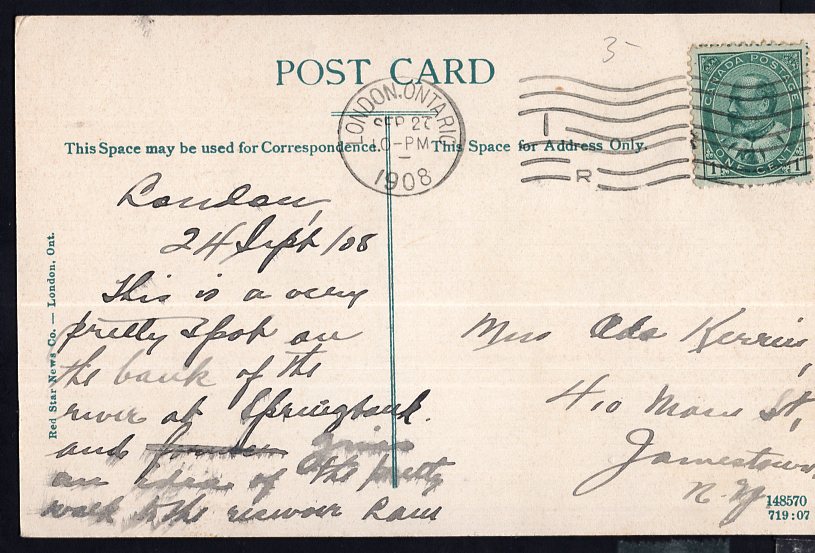 POST CARD
LONDON. ONTARIO
SEP 27
PM
1908
1
R
CANADA POSTAGE
ONE CENT
1 1
This Space may be used for Correspondence.
This Space for Address Only.
Red Star News Co. — London, Ont.
London,
24 Sept /08
This is a very
pretty spot on
the bank of the
river at Springbank.
and given
an idea of the pretty
walk to the resevoir
Ada
410 Main St,
Jamestown
N. Y
148570
719:07